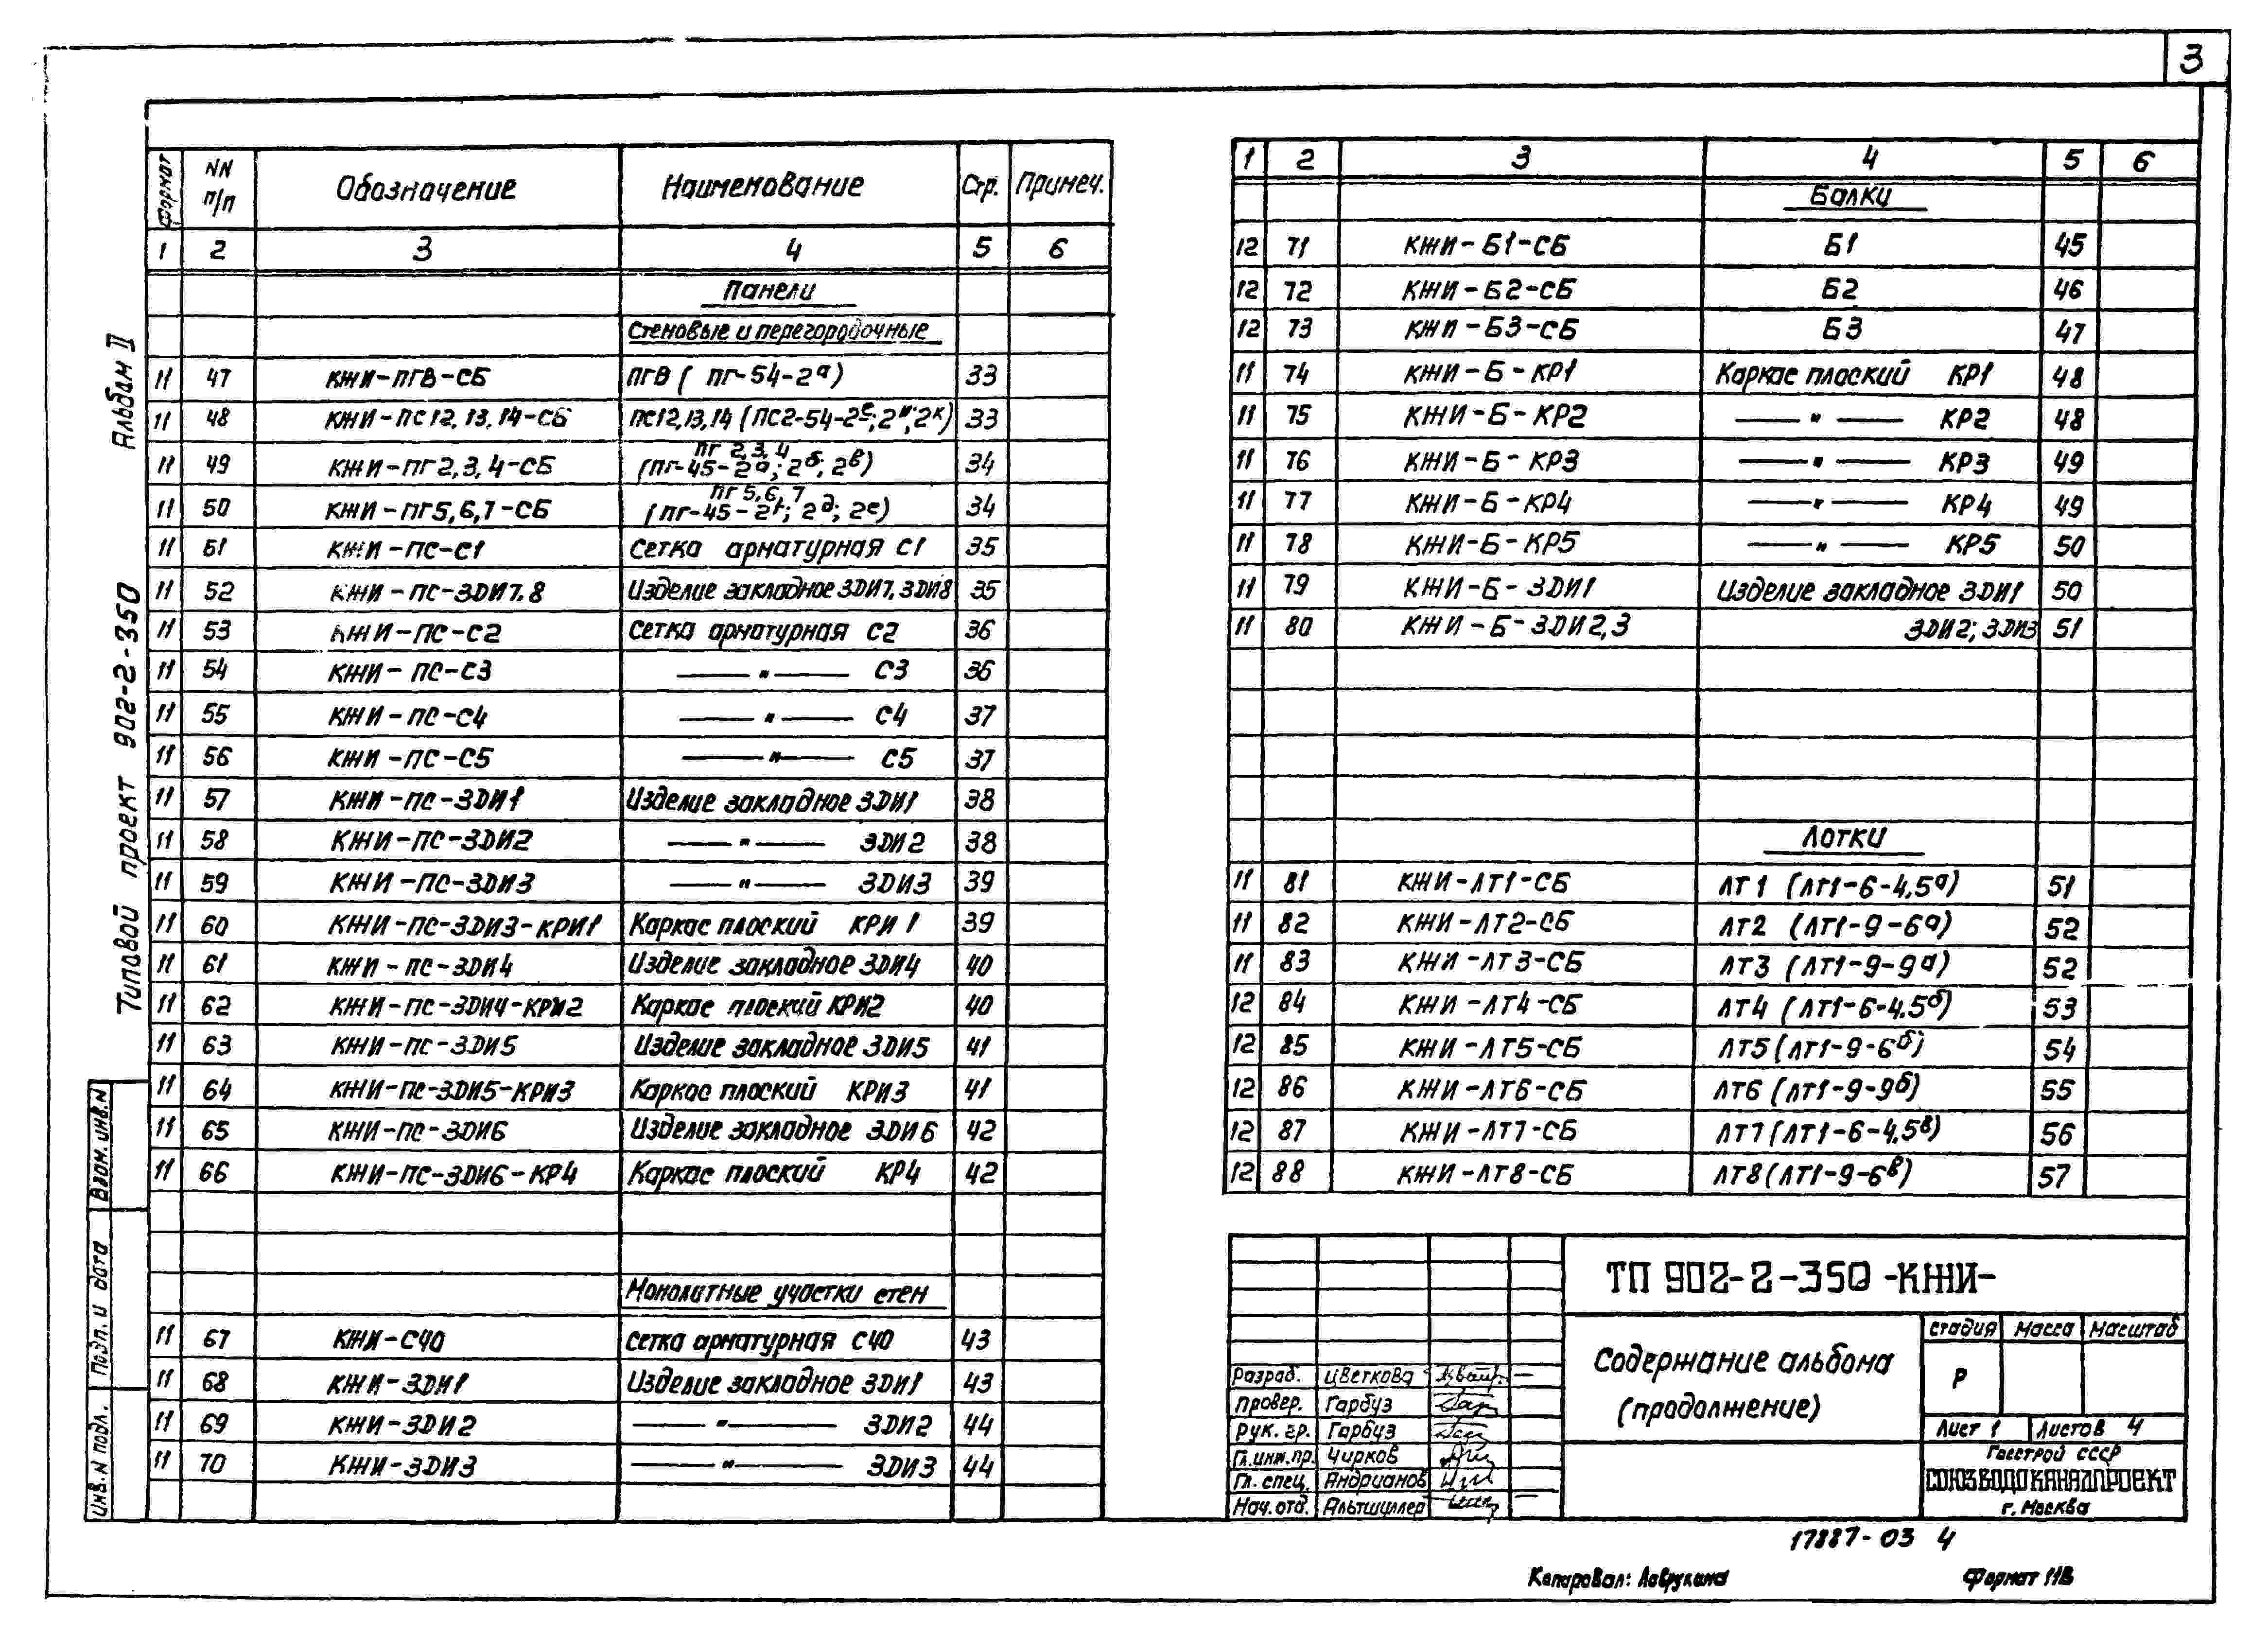 3
Альбом II
Типовой проект 902-2-350
Взам. инв. N
Подп. и дата
Инв. N подл.
Формат | NN п/п | Обозначение | Наименование | Стр. | Примеч.
1 | 2 | 3 | 4 | 5 | 6
Панели
Стеновые и перегородочные
11 | 47 | КЖИ-ПГ8-СБ | ПГ8 ( ПГ-54-2а) | 33
11 | 48 | КЖИ-ПС12,13,14-СБ | ПС12,13,14 (ПС2-54-2е;2и;2к) | 33
11 | 49 | КЖИ-ПГ2,3,4-СБ | ПГ 2,3,4 (ПГ-45-2а; 2б; 2в) | 34
11 | 50 | КЖИ-ПГ5,6,7-СБ | ПГ 5,6,7 (ПГ-45-2г; 2д; 2е) | 34
11 | 51 | КЖИ-ПС-С1 | Сетка арматурная С1 | 35
11 | 52 | КЖИ-ПС-ЗДИ7.8 | Изделие закладное ЗДИ7, ЗДИ8 | 35
11 | 53 | КЖИ-ПС-С2 | Сетка арматурная С2 | 36
11 | 54 | КЖИ-ПС-С3 | —— " —— С3 | 36
11 | 55 | КЖИ-ПС-С4 | —— " —— С4 | 37
11 | 56 | КЖИ-ПС-С5 | —— " —— С5 | 37
11 | 57 | КЖИ-ПС-ЗДИ1 | Изделие закладное ЗДИ1 | 38
11 | 58 | КЖИ-ПС-ЗДИ2 | —— " —— ЗДИ2 | 38
11 | 59 | КЖИ-ПС-ЗДИ3 | —— " —— ЗДИ3 | 39
11 | 60 | КЖИ-ПС-ЗДИ3-КРИ1 | Каркас плоский КРИ 1 | 39
11 | 61 | КЖИ-ПС-ЗДИ4 | Изделие закладное ЗДИ4 | 40
11 | 62 | КЖИ-ПС-ЗДИ4-КРИ2 | Каркас плоский КРИ2 | 40
11 | 63 | КЖИ-ПС-ЗДИ5 | Изделие закладное ЗДИ5 | 41
11 | 64 | КЖИ-ПС-ЗДИ5-КРИ3 | Каркас плоский КРИ3 | 41
11 | 65 | КЖИ-ПС-ЗДИ6 | Изделие закладное ЗДИ6 | 42
11 | 66 | КЖИ-ПС-ЗДИ6-КР4 | Каркас плоский КР4 | 42
Монолитные участки стен
11 | 67 | КЖИ-С40 | Сетка арматурная С40 | 43
11 | 68 | КЖИ-ЗДИ1 | Изделие закладное ЗДИ1 | 43
11 | 69 | КЖИ-ЗДИ2 | —— " —— ЗДИ2 | 44
11 | 70 | КЖИ-ЗДИ3 | —— " —— ЗДИ3 | 44
1 | 2 | 3 | 4 | 5 | 6
Балки
12 | 71 | КЖИ-Б1-СБ | Б1 | 45
12 | 72 | КЖИ-Б2-СБ | Б2 | 46
12 | 73 | КЖИ-Б3-СБ | Б3 | 47
11 | 74 | КЖИ-Б-КР1 | Каркас плоский КР1 | 48
11 | 75 | КЖИ-Б-КР2 | —— " —— КР2 | 48
11 | 76 | КЖИ-Б-КР3 | —— " —— КР3 | 49
11 | 77 | КЖИ-Б-КР4 | —— " —— КР4 | 49
11 | 78 | КЖИ-Б-КР5 | —— " —— КР5 | 50
11 | 79 | КЖИ-Б-ЗДИ1 | Изделие закладное ЗДИ1 | 50
11 | 80 | КЖИ-Б-ЗДИ2,3 | ЗДИ2; ЗДИ3 | 51
Лотки
11 | 81 | КЖИ-ЛТ1-СБ | ЛТ1 (ЛТ1-6-4,5а) | 51
11 | 82 | КЖИ-ЛТ2-СБ | ЛТ2 (ЛТ1-9-6а) | 52
11 | 83 | КЖИ-ЛТ3-СБ | ЛТ3 (ЛТ1-9-9а) | 52
12 | 84 | КЖИ-ЛТ4-СБ | ЛТ4 (ЛТ1-6-4,5б) | 53
12 | 85 | КЖИ-ЛТ5-СБ | ЛТ5 (ЛТ1-9-6б) | 54
12 | 86 | КЖИ-ЛТ6-СБ | ЛТ6 (ЛТ1-9-9б) | 55
12 | 87 | КЖИ-ЛТ7-СБ | ЛТ7 (ЛТ1-6-4,5в) | 56
12 | 88 | КЖИ-ЛТ8-СБ | ЛТ8 (ЛТ1-9-6в) | 57
ТП 902-2-350 -КЖИ-
Содержание альбома
(продолжение)
Стадия | Масса | Масштаб
Р
Лист 1 | Листов 4
Госстрой СССР
СОЮЗВОДОКАНАЛПРОЕКТ
г. Москва
Разраб. Цветкова
Провер. Гарбуз
Рук. гр. Гарбуз
Гл.инж.пр. Чирков
Гл. спец. Андрианов
Нач. отд. Альтшуллер
17887-03 4
Копировал: Лаврухина
Формат 11В